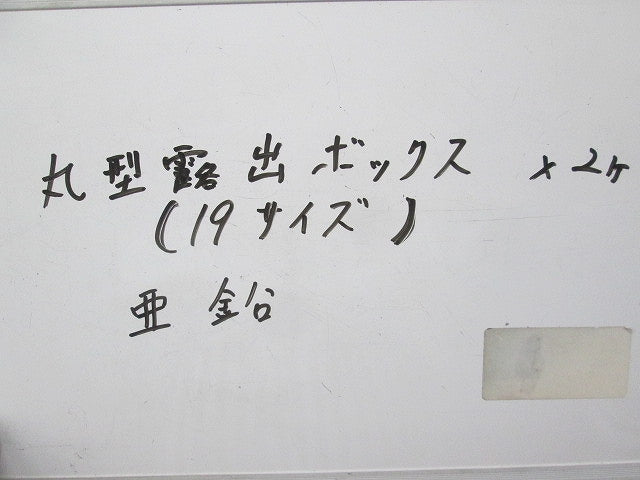 丸型露出ボックス ×2ヶ
(19サイズ)
亜鉛